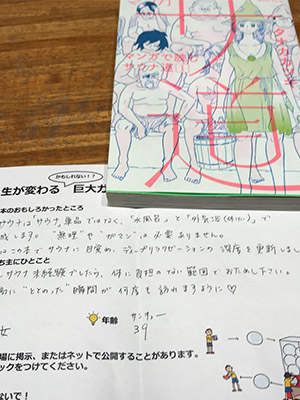 マンガで読む
サウナ道
タナカカツキ
かもしれない!?
生が変わる 巨大ガ
本のおもしろかったところ
サウナは「サウナ」単品ではなく、「水風呂」と「外気浴(休み)」で
成します。 “無理”や“がマン”は必要ありません。
はこの本でサウナに目覚め、ディープリラクゼーションの深度を更新しま
ち主にひとこと
サウナ未経験でしたら、体に負担のない範囲でおためし下さい。
“ととのった”瞬間が何度も訪れますように♡
女
年齢
サンキュー
39
場に掲示、またはネットで公開することがあります。
ックをつけてください。
ないで!